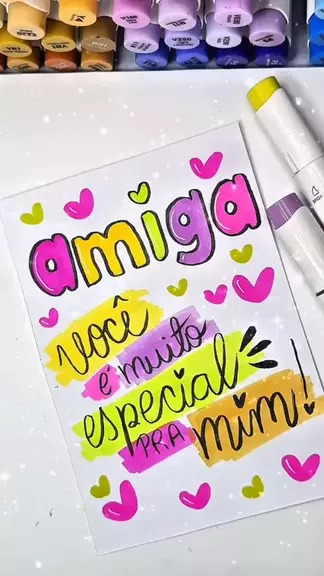 amiga
você
é muito
especial
PRA mim!